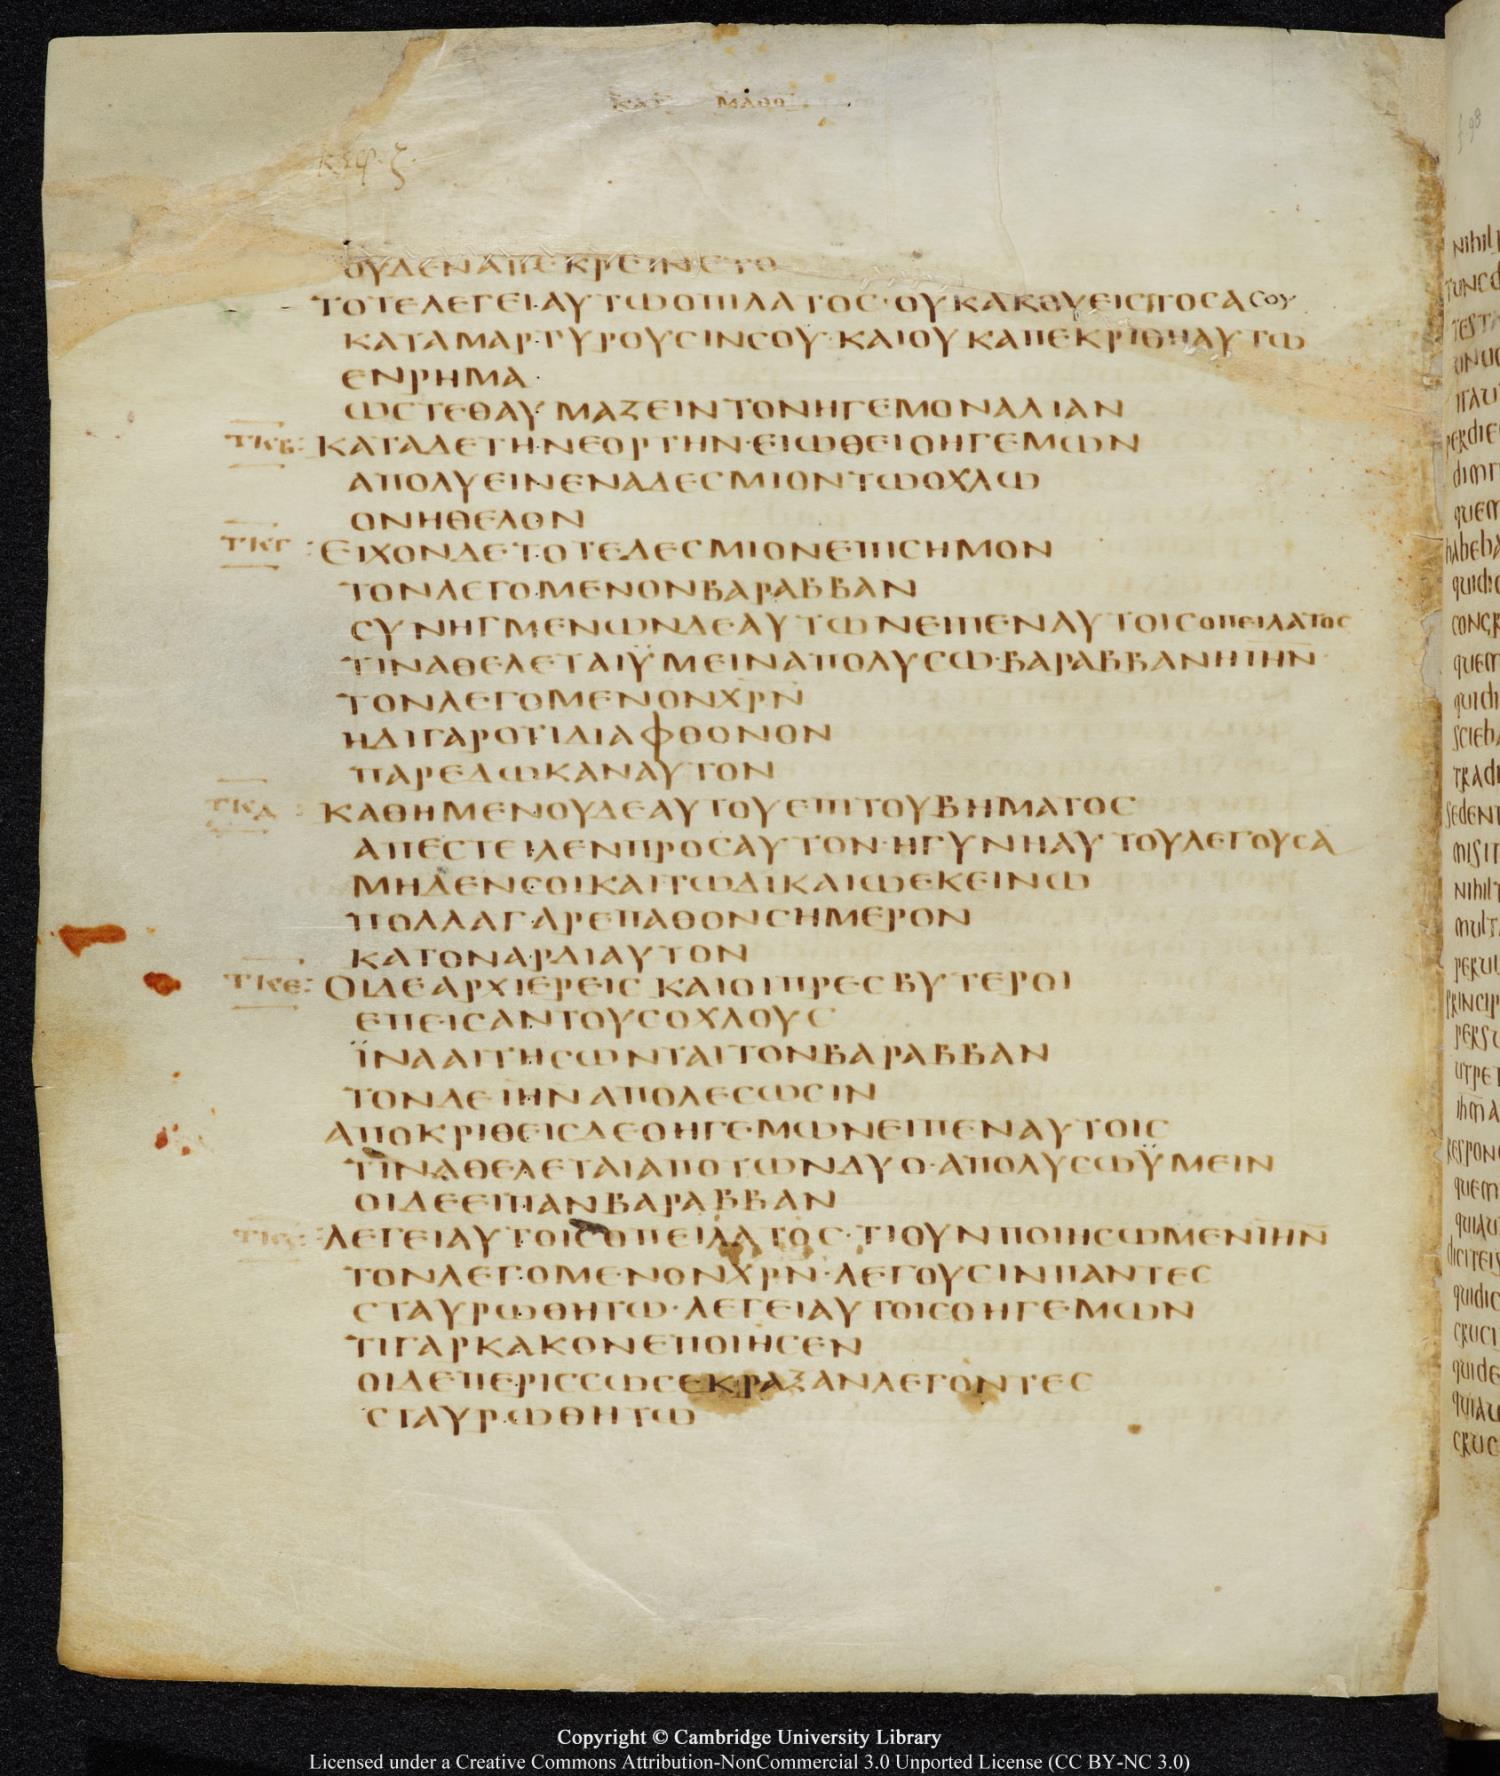 ΚΑΤ ΜΑΘΘ
κεφ. ζ.
ΟΥΔΕΝΑΠΕΚΡΕΙΝΕΤΟ
ΤΟΤΕΛΕΓΕΙ·ΑΥΤΩΟΠΙΛΑΤΟΣ·ΟΥΚΑΚΟΥΕΙΣΠΟΣΑΣΟΥ
ΚΑΤΑΜΑΡΤΥΡΟΥΣΙΝΣΟΥ·ΚΑΙΟΥΚΑΠΕΚΡΙΘΗΑΥΤΩ
ΕΝΡΗΜΑ·
ΩΣΤΕΘΑΥΜΑΖΕΙΝΤΟΝΗΓΕΜΟΝΑΛΙΑΝ
ΤΚΒ: ΚΑΤΑΔΕΤΗΝΕΟΡΤΗΝ·ΕΙΩΘΕΙΟΗΓΕΜΩΝ
ΑΠΟΛΥΕΙΝΕΝΑΔΕΣΜΙΟΝΤΩΟΧΛΩ
ΟΝΗΘΕΛΟΝ
ΤΚΓ : ΕΙΧΟΝΔΕΤΟΤΕΔΕΣΜΙΟΝΕΠΙΣΗΜΟΝ
ΤΟΝΛΕΓΟΜΕΝΟΝΒΑΡΑΒΒΑΝ
ΣΥΝΗΓΜΕΝΩΝΔΕΑΥΤΩΝΕΙΠΕΝΑΥΤΟΙΣΟΠΕΙΛΑΤΟΣ
ΤΙΝΑΘΕΛΕΤΑΙΫΜΕΙΝΑΠΟΛΥΣΩ·ΒΑΡΑΒΒΑΝΗΙΗΝ
ΤΟΝΛΕΓΟΜΕΝΟΝΧΡΝ
ΗΔΙΓΑΡΟΤΙΔΙΑΦΘΟΝΟΝ
ΠΑΡΕΔΩΚΑΝΑΥΤΟΝ
ΤΚΔ : ΚΑΘΗΜΕΝΟΥΔΕΑΥΤΟΥΕΠΙΤΟΥΒΗΜΑΤΟΣ
ΑΠΕΣΤΕΙΛΕΝΠΡΟΣΑΥΤΟΝ·ΗΓΥΝΗΑΥΤΟΥΛΕΓΟΥΣΑ
ΜΗΔΕΝΣΟΙΚΑΙΤΩΔΙΚΑΙΩΕΚΕΙΝΩ
ΠΟΛΛΑΓΑΡΕΠΑΘΟΝΣΗΜΕΡΟΝ
ΚΑΤΟΝΑΡΔΙΑΥΤΟΝ
ΤΚΕ: ΟΙΔΕΑΡΧΙΕΡΕΙΣ ΚΑΙΟΙΠΡΕΣΒΥΤΕΡΟΙ
ΕΠΕΙΣΑΝΤΟΥΣΟΧΛΟΥΣ
ΪΝΑΑΙΤΗΣΩΝΤΑΙΤΟΝΒΑΡΑΒΒΑΝ
ΤΟΝΔΕΙΗΝΑΠΟΛΕΣΩΣΙΝ
ΑΠΟΚΡΙΘΕΙΣΔΕΟΗΓΕΜΩΝΕΙΠΕΝΑΥΤΟΙΣ
ΤΙΝΑΘΕΛΕΤΑΙΑΠΟΤΩΝΔΥΟ·ΑΠΟΛΥΣΩΫΜΕΙΝ
ΟΙΔΕΕΙΠΑΝΒΑΡΑΒΒΑΝ
ΛΕΓΕΙΑΥΤΟΙΣΟΠΕΙΛΑΤΟΣ·ΤΙΟΥΝΠΟΙΗΣΩΜΕΝΙΗΝ
ΤΟΝΛΕΓΟΜΕΝΟΝΧΡΝ·ΛΕΓΟΥΣΙΝΠΑΝΤΕΣ
ΣΤΑΥΡΩΘΗΤΩ·ΛΕΓΕΙΑΥΤΟΙΣΟΗΓΕΜΩΝ
ΤΙΓΑΡΚΑΚΟΝΕΠΟΙΗΣΕΝ
ΟΙΔΕΠΕΡΙΣΣΩΣΕΚΡΑΞΑΝΛΕΓΟΝΤΕΣ
ΣΤΑΥΡΩΘΗΤΩ
Copyright © Cambridge University Library
Licensed under a Creative Commons Attribution-NonCommercial 3.0 Unported License (CC BY-NC 3.0)